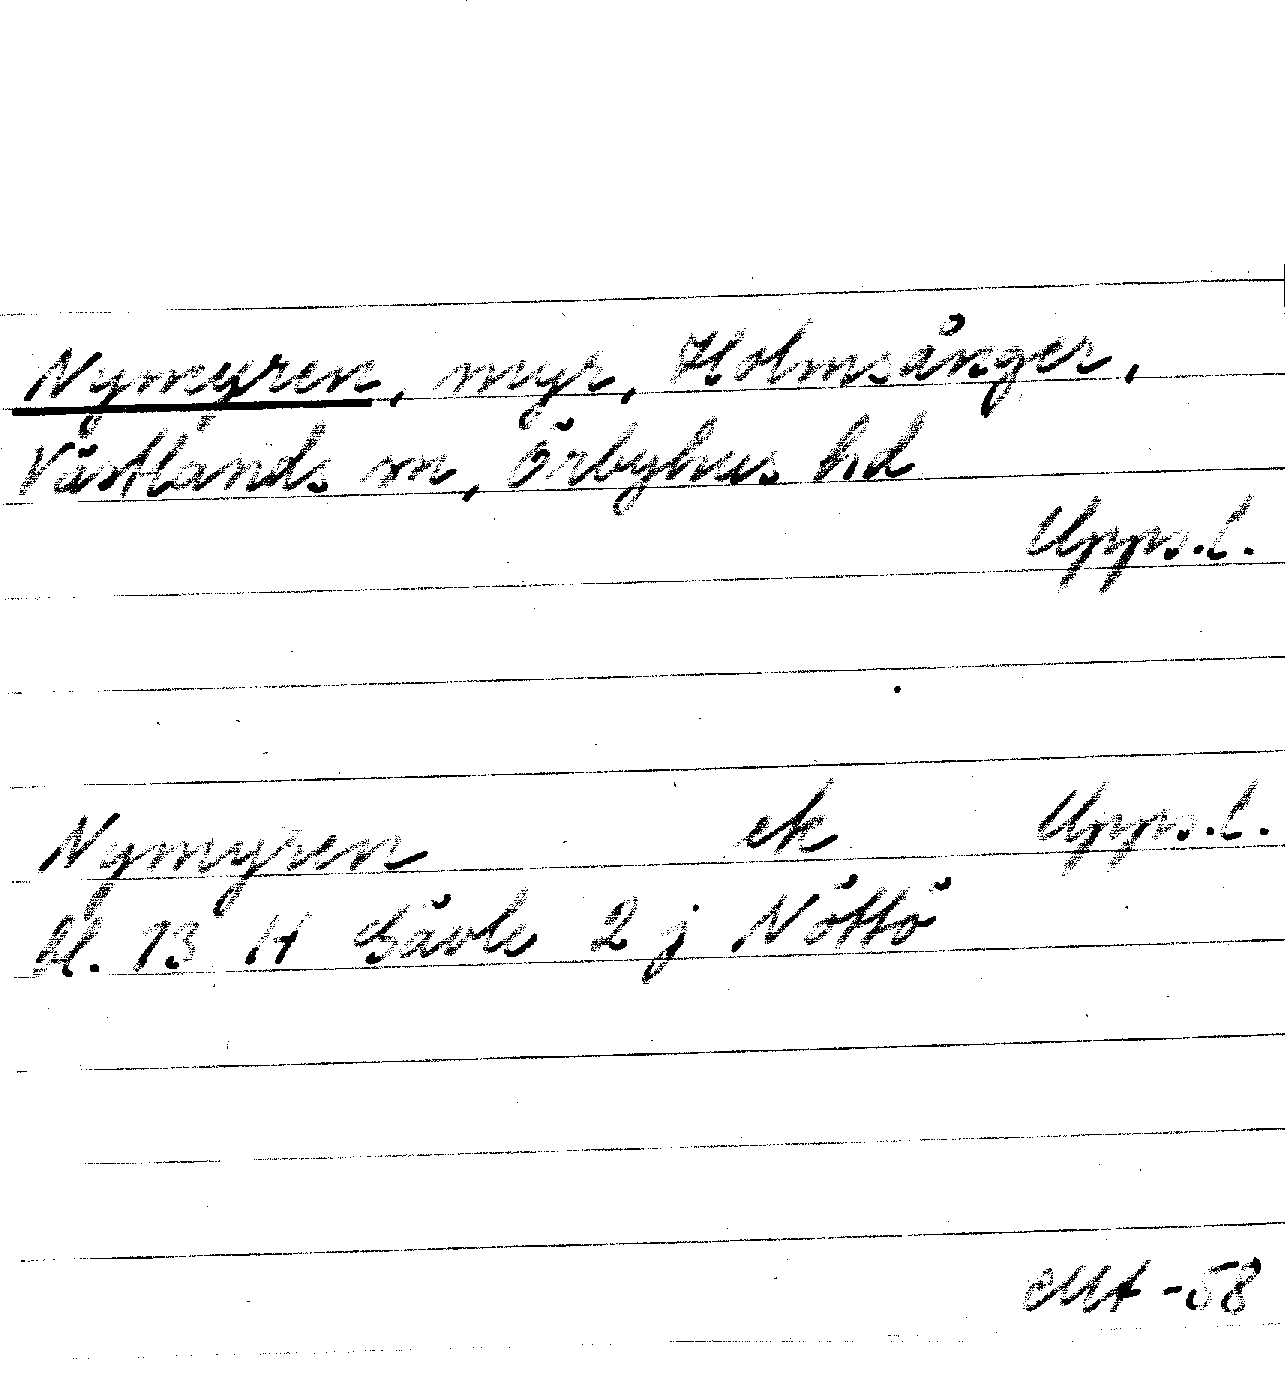 Nymyren, myr, Holmsånger,
Västlands sn, Örbyhus hd
Upps.l.
Nymyren ek Upps.l.
bl. 13 H Gävle 2 j Nöttö
MA -58